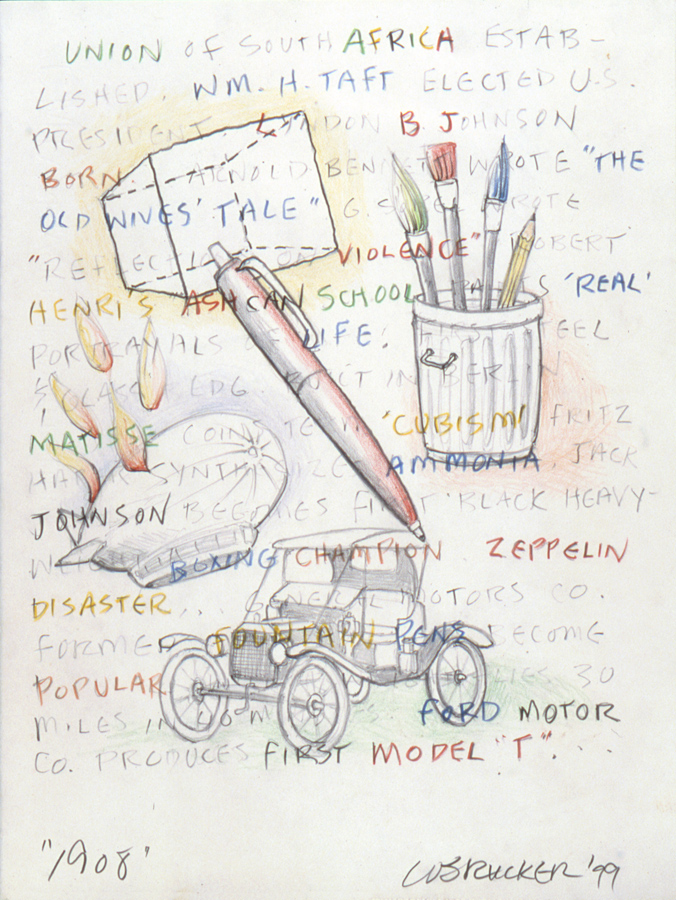 UNION OF SOUTH AFRICA ESTAB-
LISHED. WM. H. TAFT ELECTED U.S.
PRESIDENT. LYNDON B. JOHNSON
BORN. ARNOLD BENNETT WROTE "THE
OLD WIVES' TALE" G. WROTE
"REFLECTIONS ON VIOLENCE" ROBERT
HENRI'S ASHCAN SCHOOL 'REAL'
PORTRAYALS OF LIFE. STEEL
& GLASS BLDG. BUILT IN BERLIN.
MATISSE COINS TERM 'CUBISM' FRITZ
HABER SYNTHESIZES AMMONIA. JACK
JOHNSON BECOMES FIRST BLACK HEAVY-
WEIGHT BOXING CHAMPION. ZEPPELIN
DISASTER... GENERAL MOTORS CO.
FORMED FOUNTAIN PENS BECOME
POPULAR. FLIES 30
MILES IN 40 M. FORD MOTOR
CO. PRODUCES FIRST MODEL "T"....
"1908"
WBRUCKER '99